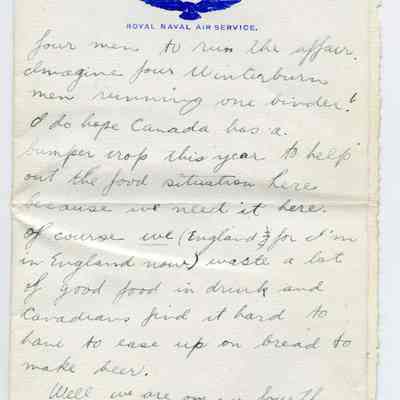 ROYAL NAVAL AIR SERVICE.
four men to run the affair.
Imagine four Winterburn
men running one binder!
I do hope Canada has a
bumper crop this year to help
out the food situation here
because we need it here.
Of course we (England for I'm
in England now) waste a lot
of good food in drink and
Canadians find it hard to
have to ease up on bread to
make beer.
Well we are on our fourth